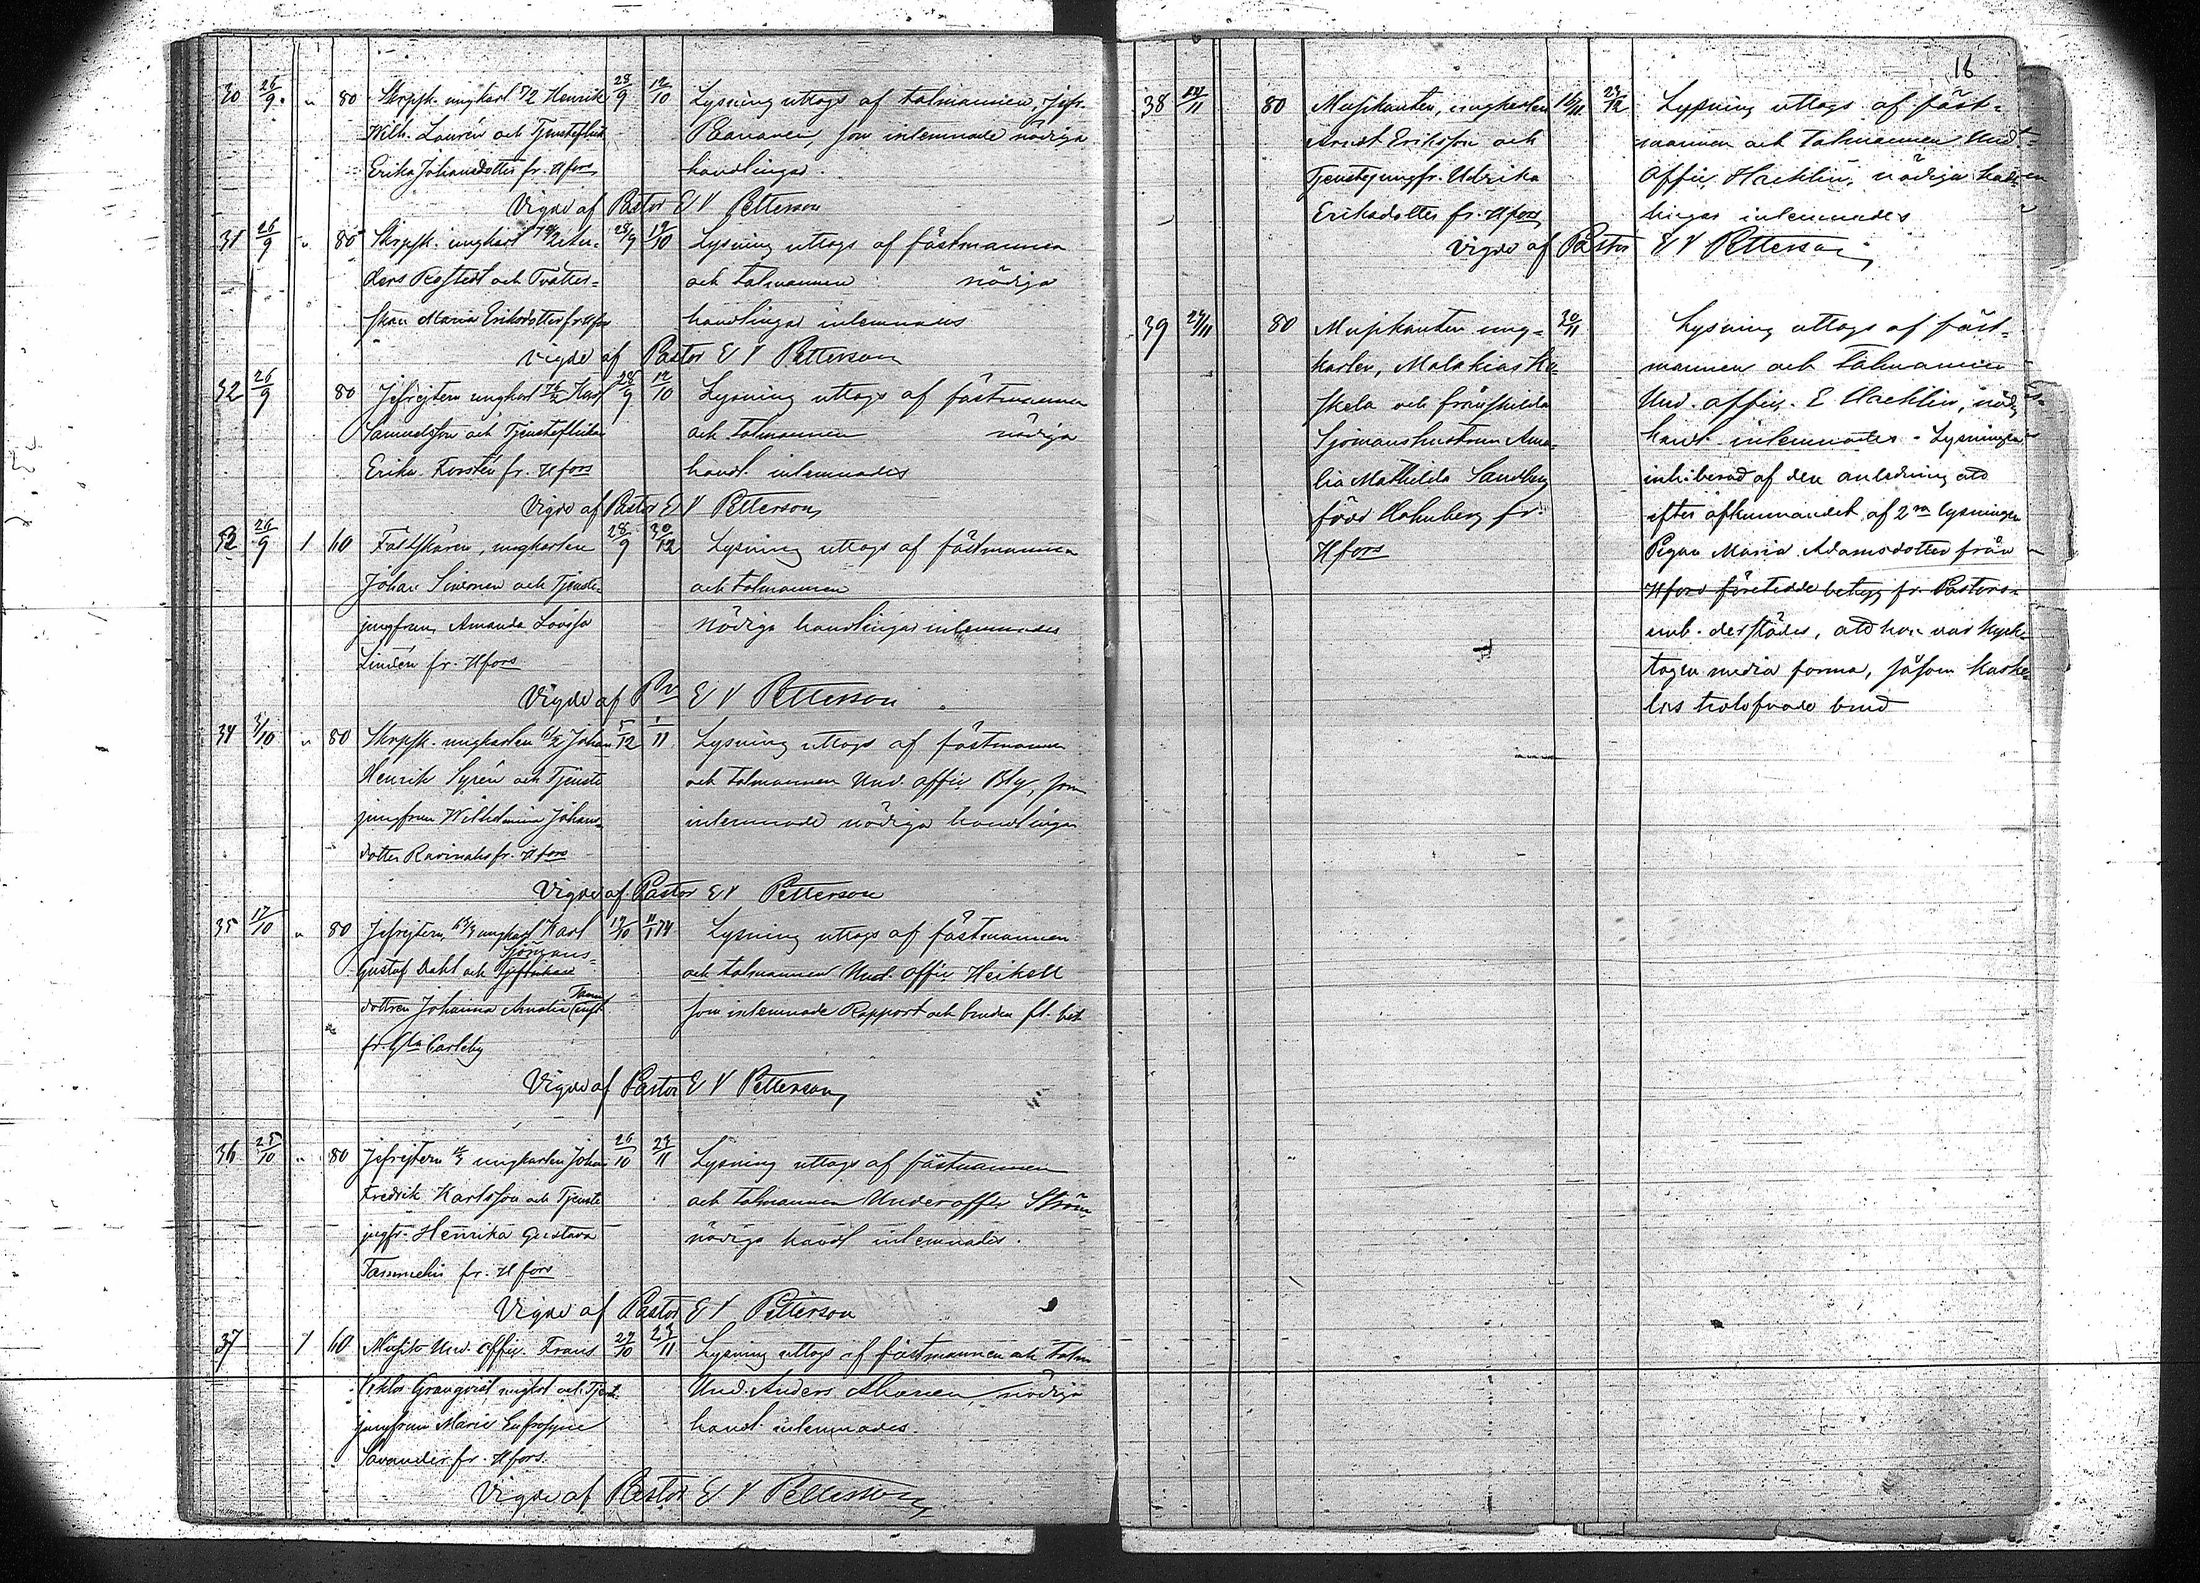 30 26/9 " 80 Skrpsk. ungkarl 5/2 Henrik 28/9 12/10 Lysning uttogs af talmannen, Jefr.
Wilh. Laurén och Tjensteflick som inlemnade nödiga
Erika Johansdotter fr. Hfors handlingar.
Vigde af Pastor E V Petterson
31 26/9 " 80 Skrpsk. ungkarl An- 28/9 12/10 Lysning uttogs af fästmannen
ders Rosstedt och Tvätter- och talmannen nödiga
skan Maria Eriksdotter fr Hfors handlingar inlemnades
Vigde af Pastor E V Petterson
32 26/9 80 Jefrejtern ungkarl 28/9 12/10 Lysning uttogs af fästmannen
Samuelsson och Tjensteflickan och talmannen nödiga
Erika Forstén fr. Hfors handl. inlemnades
Vigde af Pastor E V Petterson
33 26/9 1 60 Fältskären, ungkarlen 28/9 30/12 Lysning uttogs af fästmannen
Johan Simonen och Tjenste- och talmannen
jungfrun Amanda Lovisa Nödiga handlingar inlemnades
Lindén fr. Hfors
Vigde af Pr E V Petterson
34 3/10 " 80 Skrpsk. ungkarlen 6/2 Johan 5/12 1/11 Lysning uttogs af fästmannen
Henrik Syrén och Tjenste och talmannen Und. offic. Bly, som
jungfrun Wilhelmina Johans- inlemnade nödiga handlingar
dotter fr. Hfors
Vigde af Pastor E V Petterson
35 17/10 " 80 Jefrejtern, ungkarl Karl 19/10 Lysning uttogs af fästmannen
Sjömans-
Gustaf Dahl och och talmannen Und. offic. Heikell
dottren Johanna Amalia som inlemnade Rapport och bruden fl. bet.
fr. Gla Carleby
Vigde af Pastor E V Petterson
36 25/10 " 80 Jefrejtern ungkarlen Johan 26/10 23/11 Lysning uttogs af fästmannen
Fredrik Karlsson och Tjenste och talmannen Underoffic Ström,
jngfr. Henrika Gustava nödiga handl inlemnades.
Tammelin fr. Hfors
Vigde af Pastor E V Petterson
37 1 60 Und. offic. Frans 27/10 23/11 Lysning uttogs af fästmannen och talm
Viktor Granqvist, ungkrl och Tjenst- Und. Anders Ahonen, nödiga
jungfrun Maria Eufrosyne handl. inlemnades.
Savander fr. Hfors.
Vigde af Pastor E V Petterson
18
38 14/11 80 Musikanten, ungkarlen 16/11 27/12 Lysning uttogs af fäst-
Arvid Eriksson och mannen och talmannen Und.
Tjenstejungfr. Ulrika Offic. Hacklin, nödiga hand-
Eriksdotter fr. Hfors lingar inlemnades
Vigde af Pastor E V Petterson
39 29/11 80 Musikanten ung- 30/11 Lysning uttogs af fäst-
karlen, Malakias Ka- mannen och talmannen
skela och frånskilda Und. offic. E Hacklin, nödig
Sjömanshustrun Ama- handl. inlemnades. Lysningen
lia Mathilda Sandberg inhiberad af den anledning att
född Holmberg fr. efter afkunnandet af 2ra lysningen
Hfors Pigan Maria Adamsdotter från
Hfors företedde betyg fr. Pastors-
emb. derstädes, att hon var kyrk-
tagen media forma, såsom Kaske-
las trolofvade brud